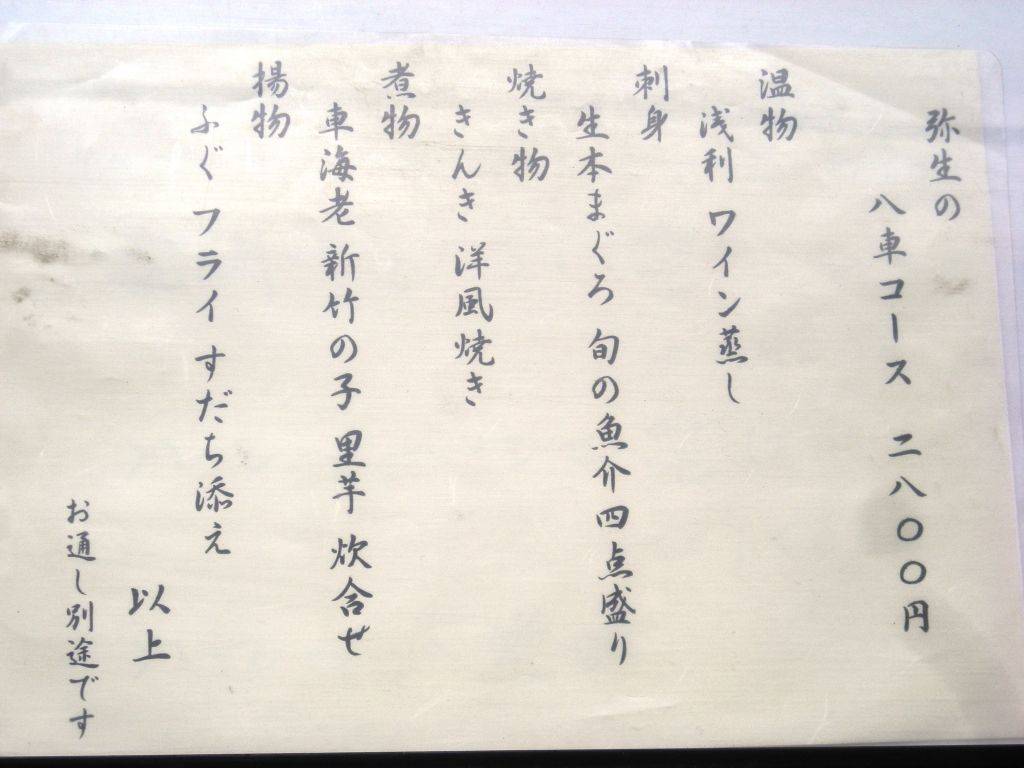 弥生の
八車コース 二八〇〇円
温物
浅利 ワイン蒸し
刺身
生本まぐろ 旬の魚介四点盛り
焼き物
きんき 洋風焼き
煮物
車海老 新竹の子 里芋 炊合せ
揚物
ふぐ フライ すだち添え
以上
お通し別途です